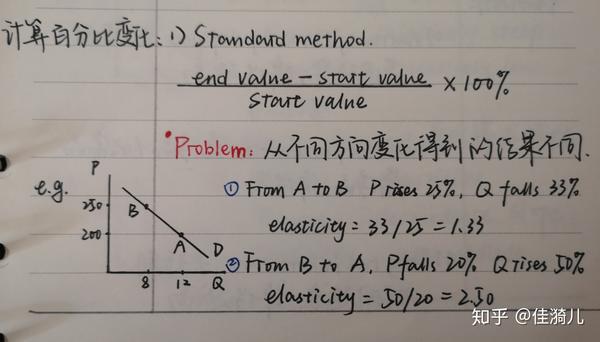 计算百分比变化：1) Standard method.
end value - start value
start value
× 100%
•Problem: 从不同方向变化得到的结果不同.
e.g.
P
250
200
B
A
D
8
12
Q
① From A to B P rises 25%, Q falls 33%
elasticity = 33/25 = 1.33
② From B to A, P falls 20% Q rises 50%
elasticity = 50/20 = 2.50
知乎 @佳漪儿